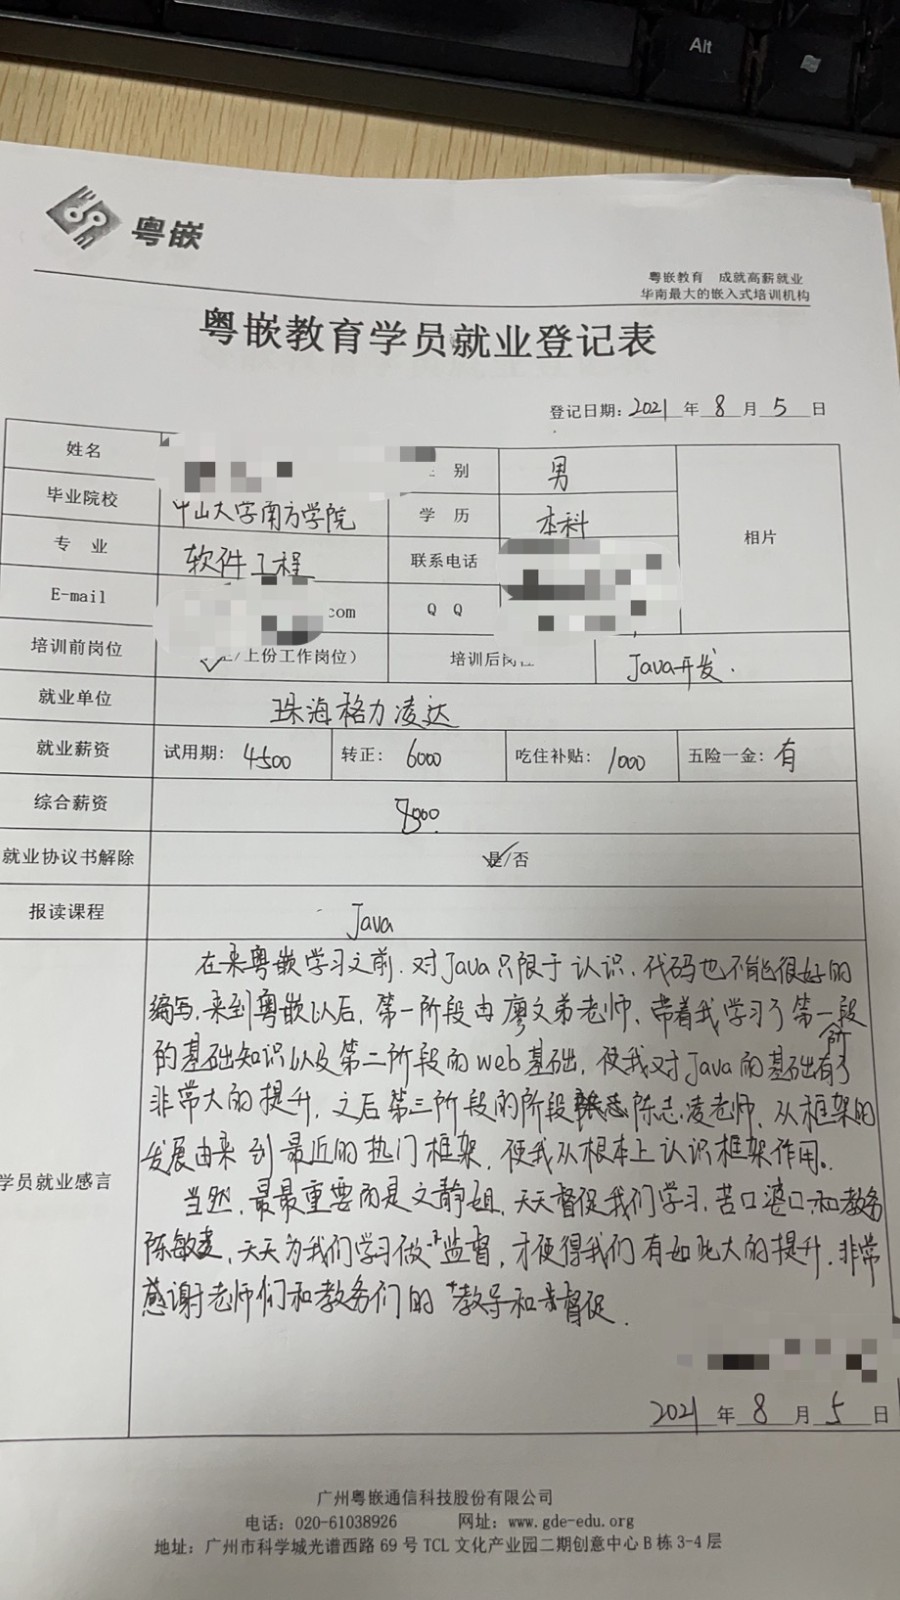 Alt
粤嵌
粤嵌教育 成就高薪就业
华南最大的嵌入式培训机构
粤嵌教育学员就业登记表
登记日期：2021 年 8 月 5 日
姓名 别 男
毕业院校 中山大学南方学院 学 历 本科 相片
专 业 软件工程 联系电话
E-mail .com Q Q
培训前岗位 /上份工作岗位） 培训后岗位 Java开发.
就业单位 珠海格力凌达
就业薪资 试用期：4500 转正：6000 吃住补贴：1000 五险一金：有
综合薪资 000.
就业协议书解除 是/否
报读课程 Java
在来粤嵌学习之前.对Java只限于认识.代码也不能很好的
编写.来到粤嵌以后.第一阶段由廖文弟老师.带着我学习了第一阶段
的基础知识以及第二阶段的web基础.使我对Java的基础有了
非常大的提升.之后第三阶段的阶段陈志凌老师.从框架的
发展由来到最近的热门框架.使我从根本上认识框架作用。
学员就业感言
当然.最最重要而是文静姐.天天督促我们学习.苦口婆口.和教务
陈敏.天天为我们学习做监督.才使得我们有如此大的提升.非常
感谢老师们和教务们的教导和督促.
2021 年 8 月 5 日
广州粤嵌通信科技股份有限公司
电话：020-61038926 网址：www.gde-edu.org
地址：广州市科学城光谱西路 69 号 TCL 文化产业园二期创意中心 B 栋 3-4 层